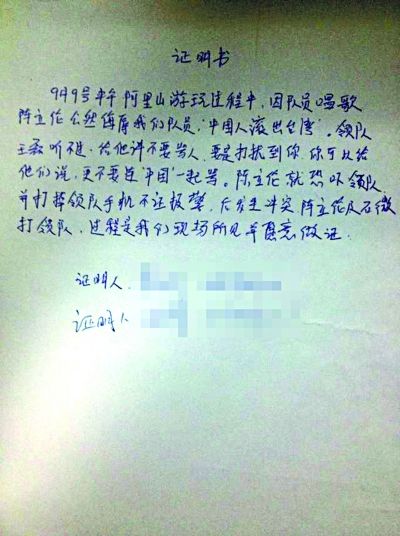 证明书
9月9号中午阿里山游玩过程中,因队员唱歌
陈立伦公然侮辱我们队员,"中国人滚出台湾"。领队
王磊听不过,给他讲不要骂人,要是打扰到你,你可以给
他们说,更不要连"中国"一起骂。陈立伦就恐吓领队
并打掉领队手机不让报警,后发生冲突陈立伦及石徵
打领队,过程是我们现场所见并愿意做证.
证明人.
证明人